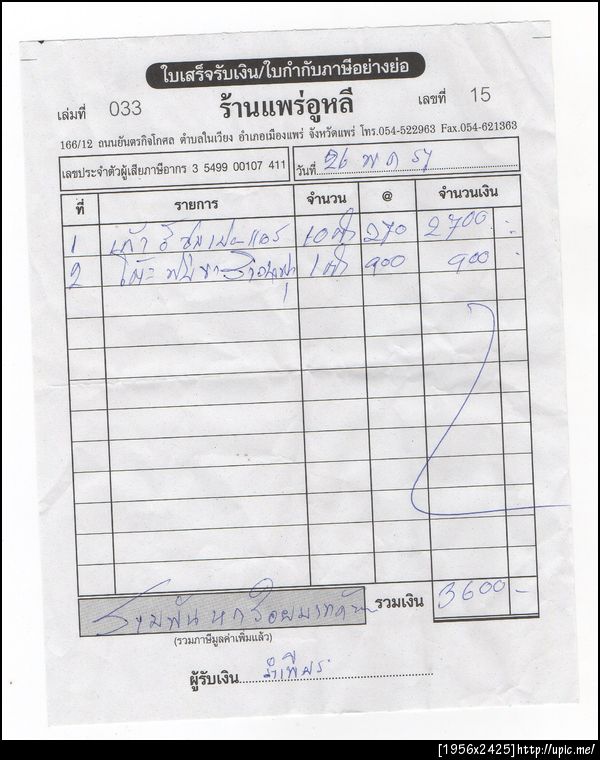 ใบเสร็จรับเงิน/ใบกำกับภาษีอย่างย่อ
เล่มที่ 033 ร้านแพร่อูหลี เลขที่ 15
166/12 ถนนยันตรกิจโกศล ตำบลในเวียง อำเภอเมืองแพร่ จังหวัดแพร่ โทร.054-522963 Fax.054-621363
เลขประจำตัวผู้เสียภาษีอากร 3 5499 00107 411 วันที่ 26 พค 57
ที่ รายการ จำนวน @ จำนวนเงิน
1 เก้าอี้ 10 ตัว 270 2700 -
2 โต๊ะ 1 ตัว 900 900 -
สามพันหกร้อยบาทถ้วน รวมเงิน 3600 -
(รวมภาษีมูลค่าเพิ่มแล้ว)
ผู้รับเงิน
[1956x2425]http://upic.me/